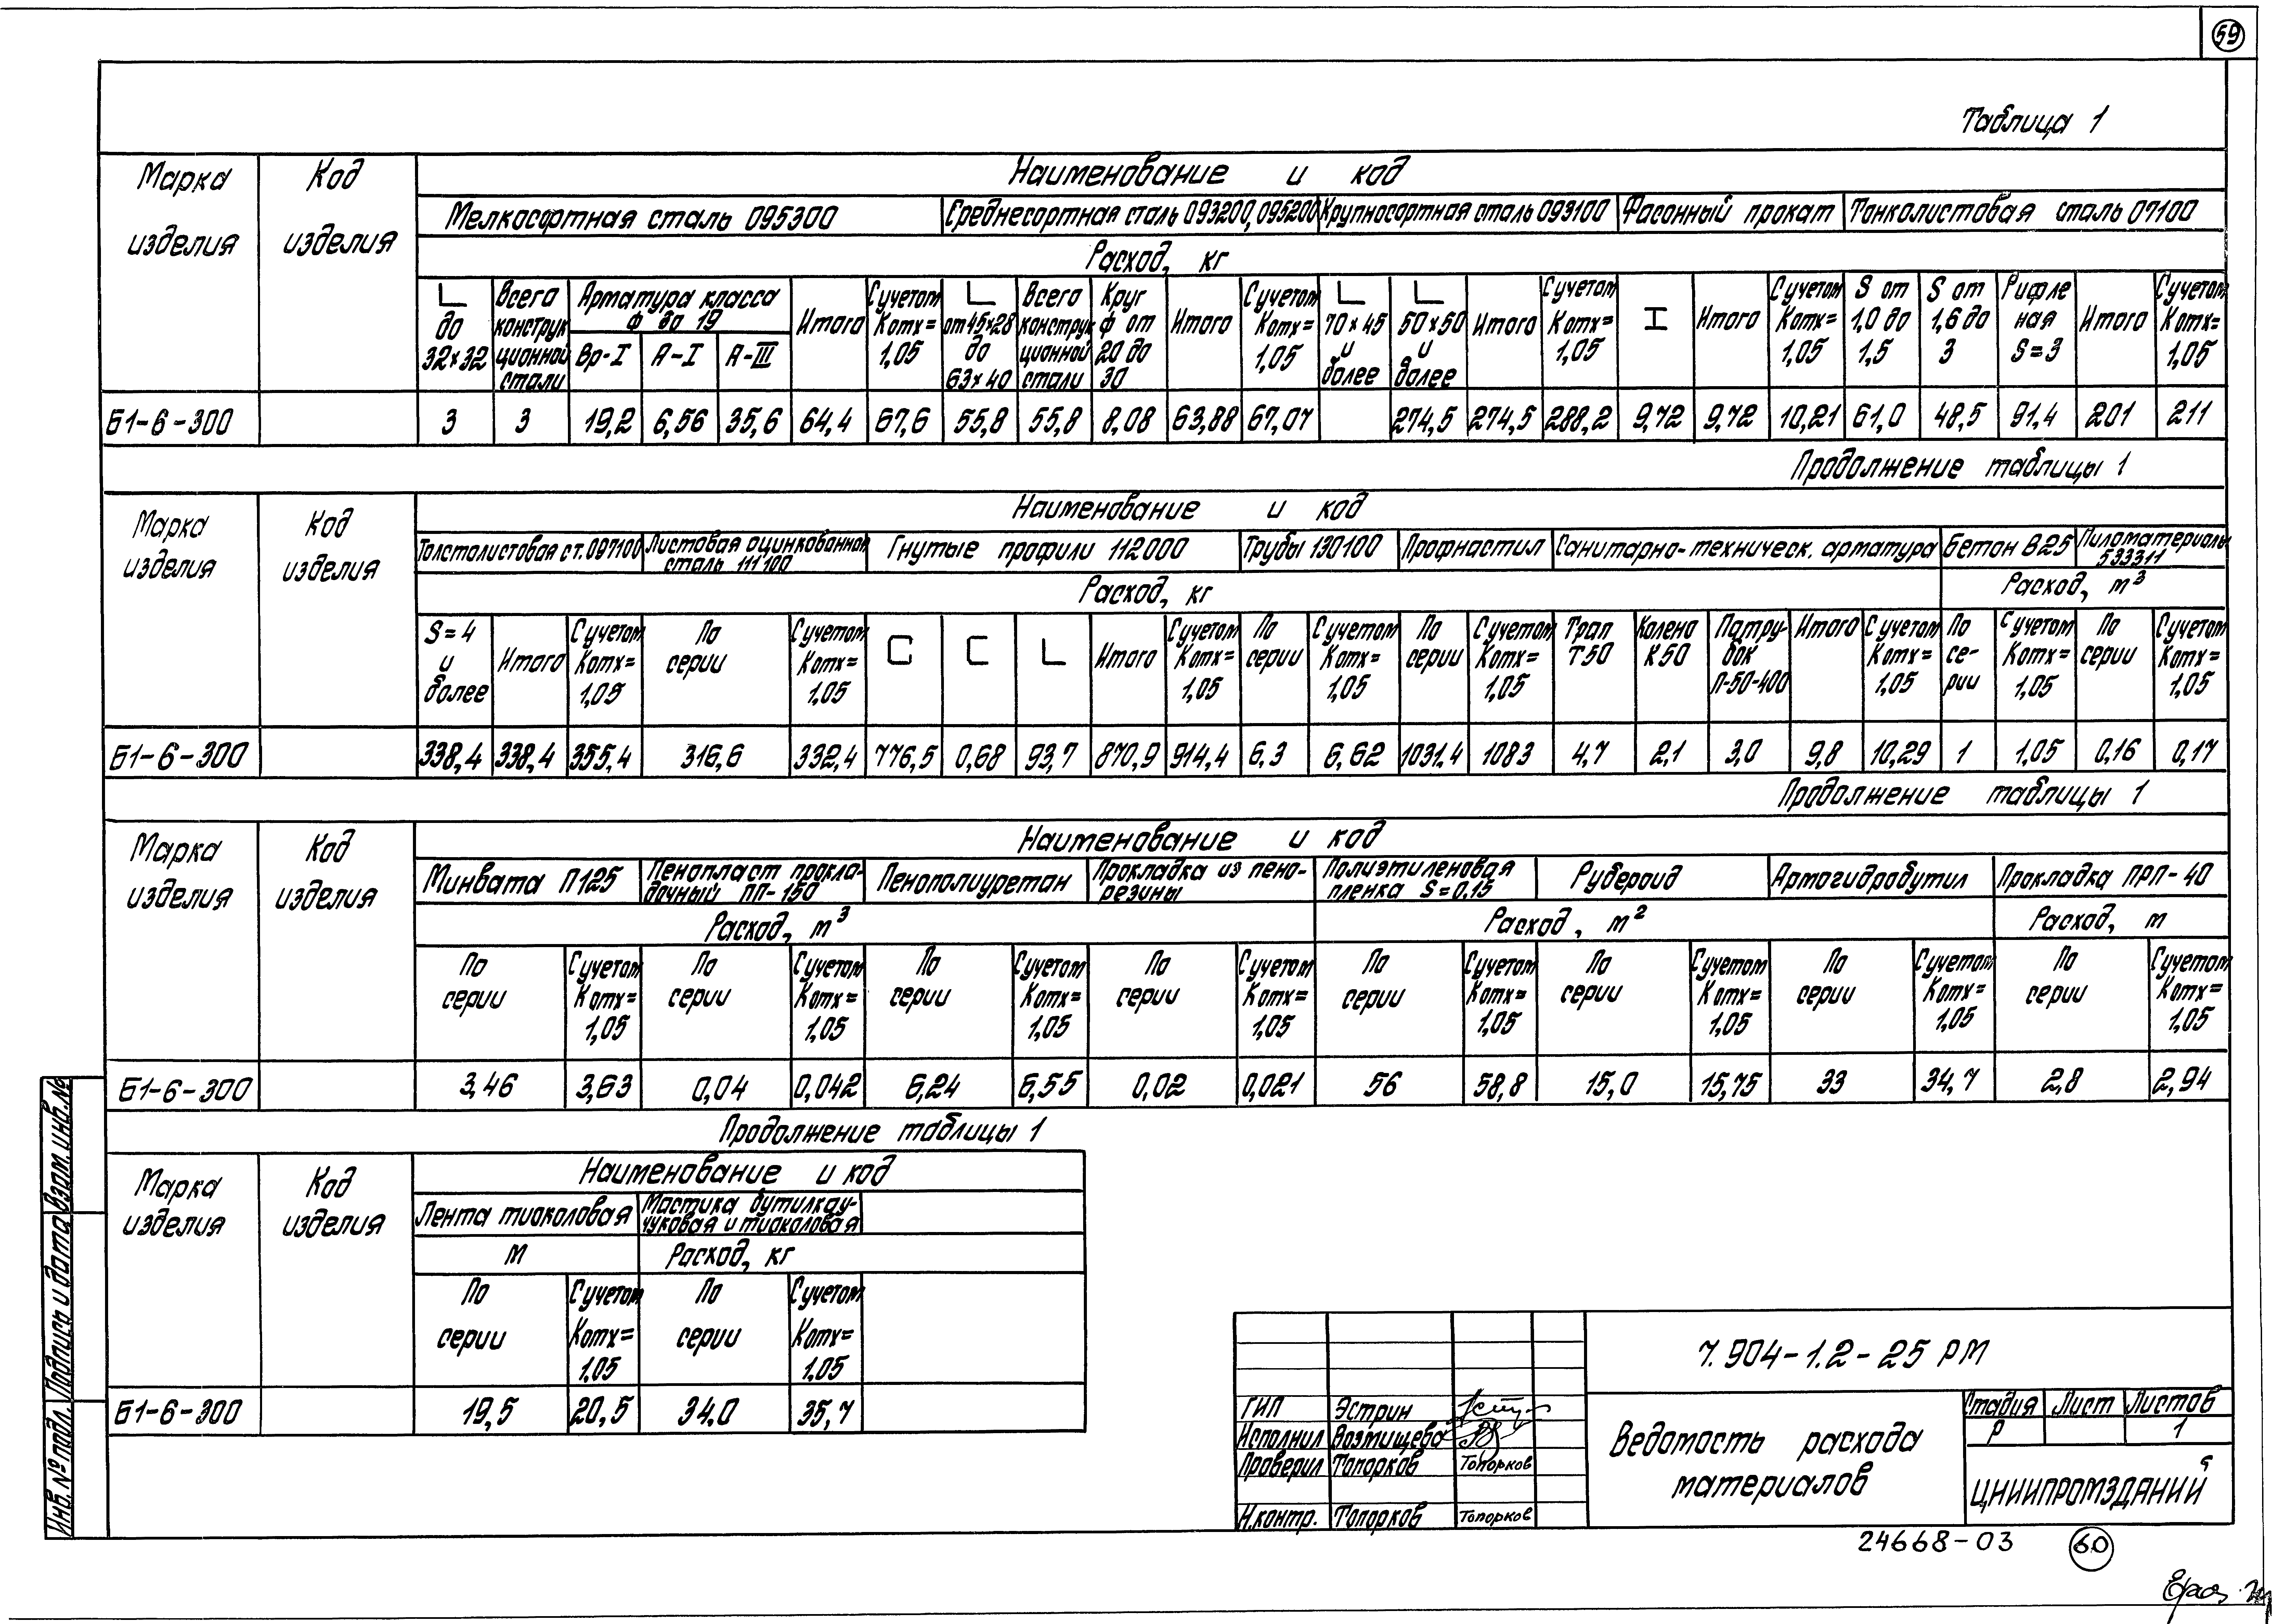 59
Таблица 1
Марка изделия
Код изделия
Наименование и код
Мелкосортная сталь 095300
Среднесортная сталь 093200, 095200
Крупносортная сталь 093100
Фасонный прокат
Тонколистовая сталь 07100
Расход, кг
до 32×32
Всего конструкционной стали
Арматура класса ф до 19
Вр-I
А-I
А-III
Итого
С учетом Котх= 1,05
от 45×28 до 63×40
Всего конструкционной стали
Круг ф от 20 до 30
Итого
С учетом Котх= 1,05
70×45 и более
50×50 и более
Итого
С учетом Котх= 1,05
Итого
С учетом Котх= 1,05
S от 1,0 до 1,5
S от 1,6 до 3
Рифленая S=3
Итого
С учетом Котх= 1,05
Б1-6-300 3 3 19,2 6,56 35,6 64,4 67,6 55,8 55,8 8,08 63,88 67,07 274,5 274,5 288,2 9,72 9,72 10,21 61,0 48,5 91,4 201 211
Продолжение таблицы 1
Марка изделия
Код изделия
Наименование и код
Толстолистовая ст. 097100
Листовая оцинкованная сталь 111100
Гнутые профили 112000
Трубы 130100
Профнастил
Санитарно-техническ. арматура
Бетон В25
Пиломатериалы 533311
Расход, кг
Расход, м³
S=4 и более
Итого
С учетом Котх= 1,05
По серии
С учетом Котх= 1,05
Итого
С учетом Котх= 1,05
По серии
С учетом Котх= 1,05
По серии
С учетом Котх= 1,05
Трап Т50
Колено К50
Патрубок П-50-400
Итого
С учетом Котх= 1,05
По се-рии
С учетом Котх= 1,05
По серии
С учетом Котх= 1,05
Б1-6-300 338,4 338,4 355,4 316,6 332,4 776,5 0,68 93,7 870,9 914,4 6,3 6,62 1031,4 1083 4,7 2,1 3,0 9,8 10,29 1 1,05 0,16 0,17
Продолжение таблицы 1
Марка изделия
Код изделия
Наименование и код
Минвата П125
Пенопласт прокла-дочный ПП-150
Пенополиуретан
Прокладка из пено-резины
Полиэтиленовая пленка S=0,15
Рубероид
Армогидробутил
Прокладка ПРП-40
Расход, м³
Расход, м²
Расход, м
По серии
С учетом Котх= 1,05
По серии
С учетом Котх= 1,05
По серии
С учетом Котх= 1,05
По серии
С учетом Котх= 1,05
По серии
С учетом Котх= 1,05
По серии
С учетом Котх= 1,05
По серии
С учетом Котх= 1,05
По серии
С учетом Котх= 1,05
Б1-6-300 3,46 3,63 0,04 0,042 6,24 6,55 0,02 0,021 56 58,8 15,0 15,75 33 34,7 2,8 2,94
Продолжение таблицы 1
Марка изделия
Код изделия
Наименование и код
Лента тиоколовая
Мастика бутилкау-чуковая и тиоколовая
М
Расход, кг
По серии
С учетом Котх= 1,05
По серии
С учетом Котх= 1,05
Б1-6-300 19,5 20,5 34,0 35,7
Взам. инв. №
Подпись и дата
Инв. № подл.
7.904-1.2-25 РМ
ГИП Эстрин
Исполнил Возмищева
Проверил Топорков Топорков
Н.контр. Топорков Топорков
Ведомость расхода материалов
Стадия Лист Листов
Р 1
ЦНИИПРОМЗДАНИЙ
24668-03 60